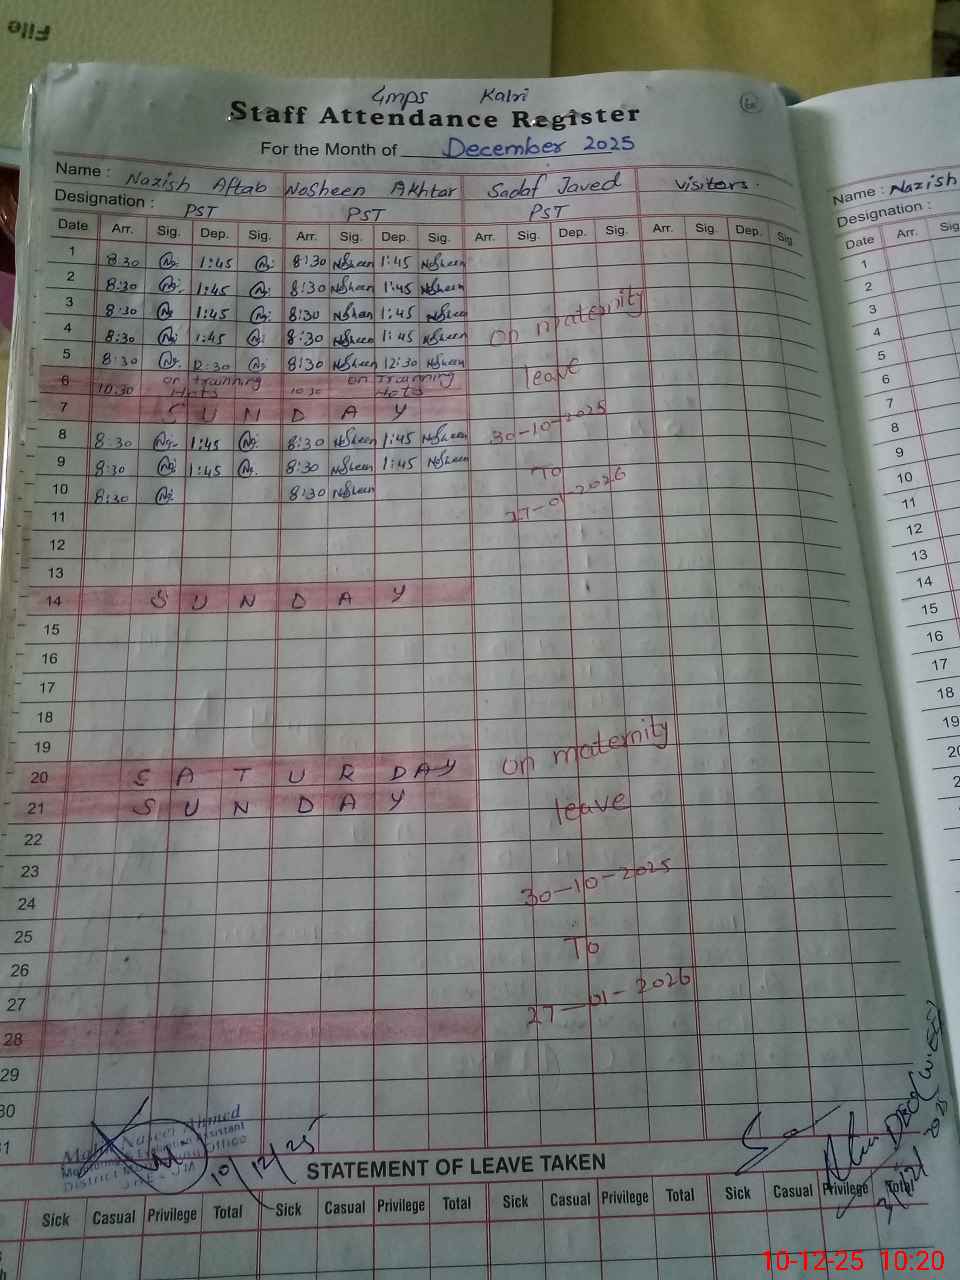 File
GMPS Kalri
60
Staff Attendance Register
For the Month of December 2025
Name : Nazish Aftab Nosheen Akhtar Sadaf Javed Visitors.
Designation : PST PST PST
Date Arr. Sig. Dep. Sig. Arr. Sig. Dep. Sig. Arr. Sig. Dep. Sig. Arr. Sig. Dep. Sig.
1 8:30 1:45 8:30 Nosheen 1:45 Nosheen
2 8:30 1:45 8:30 Nosheen 1:45 Nosheen
3 8:30 1:45 8:30 Nosheen 1:45 Nosheen On maternity
4 8:30 1:45 8:30 Nosheen 1:45 Nosheen
5 8:30 12:30 8:30 Nosheen 12:30 Nosheen leave
6 10:30 on trainning Hots 10:30 on Trainning Hots
7 S U N D A Y
8 8:30 1:45 8:30 Nosheen 1:45 Nosheen 30-10-2025
9 8:30 1:45 8:30 Nosheen 1:45 Nosheen To
10 8:30 8:30 Nosheen 27-01-2026
11
12
13
14 S U N D A Y
15
16
17
18
19 on maternity
20 S A T U R D A Y
21 S U N D A Y leave
22
23
24 30-10-2025
25 To
26
27 27-01-2026
28
29
30
31
Naseer Ahmed
Monitoring & Evaluation Assistant
District Monitoring Office
10/12/25
STATEMENT OF LEAVE TAKEN
Sick Casual Privilege Total Sick Casual Privilege Total Sick Casual Privilege Total Sick Casual Privilege Total
Name : Nazish
Designation :
Date Arr. Sig.
1
2
3
4
5
6
7
8
9
10
11
12
13
14
15
16
17
18
19
20
21
10-12-25 10:20